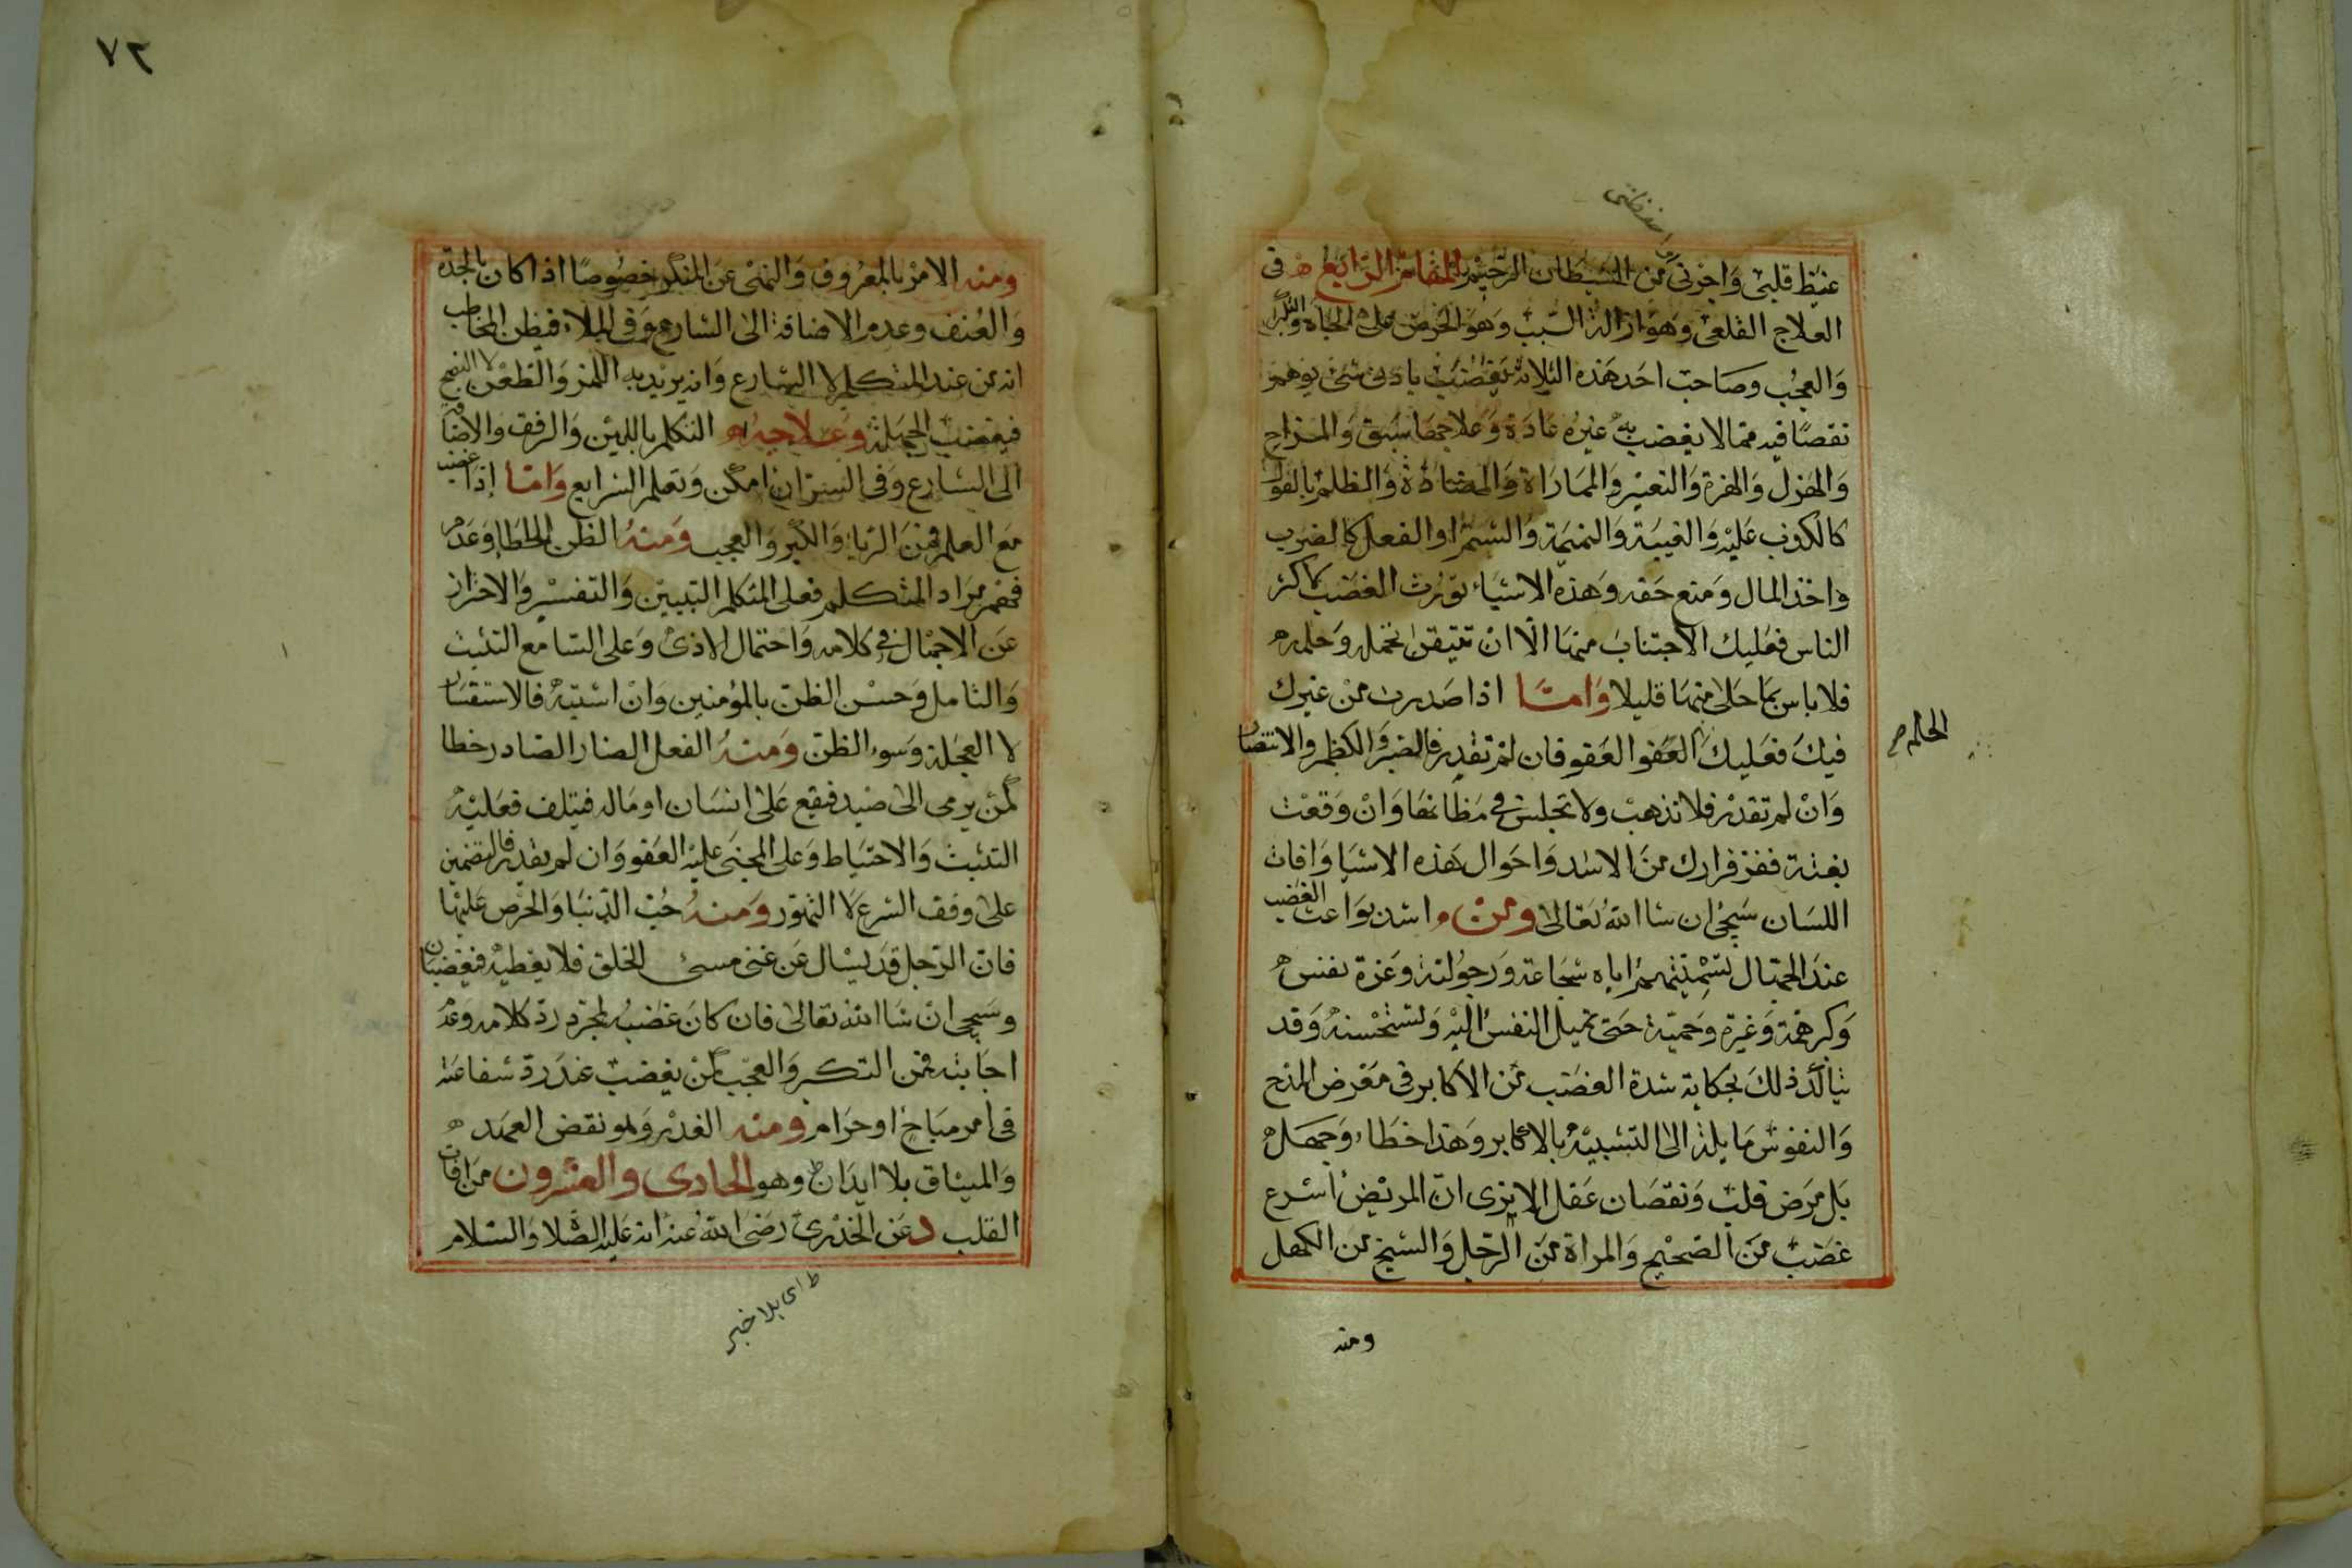 غيظ قلبى واجرنى من الشيطان الرجيم المقام الرابع فى
العلاج القلعى وهو ازالة السبب وهو الحرص على الجاه والتكبر
والعجب وصاحب احد هذه الثلاثة يغضب بادنى شئ يوهم
نقصًا فيه مما لا يغضب به غيره عادة وعلاجها سبق والمزاح
والهزل والهزء والتعيير والمماراة والمضادة والظلم بالقول
كالكذب عليه والغيبة والنميمة والشتم او الفعل كالضرب
واخذ المال ومنع حقه وهذه الاشياء تورث الغضب لاكثر
الناس فعليك الاجتناب منها الا ان تتيقن تحمله وحلمه
فلا باس بما حل منها قليلا واما اذا صدرت من غيرك
فيك فعليك العفو العفو فان لم تقدر فالصبر والكظم والانتصار
الحلم
وان لم تقدر فلا تذهب ولا تجلس فى مظانها وان وقعت
بغتة ففر فرارك من الاسد واحوال هذه الاشيا وافات
اللسان سيجئ ان شا الله تعالى ومن اشد بواعث الغضب
عند الجهال تسميتهم اياه شجاعة ورجولة وعزة نفس
وكبر همة وغيرة وحمية حتى تميل النفس اليه وتستحسنه وقد
يتاكد ذلك بحكاية شدة الغضب من الاكابر فى معرض المدح
والنفوس مايلة الى التشبيه بالاكابر وهذا خطاء وجهل
بل مرض قلب ونقصان عقل الا يرى ان المريض اسرع
غضب من الصحيح والمراة من الرجل والشيخ من الكهل
ومنه
٧٢
ومنه الامر بالمعروف والنهى عن المنكر خصوصًا اذا كان بالحدة
والعنف وعدم الاضافة الى الشارع وفى الملاء فيظن المخاطب
انه من عند المتكلم لا الشارع وانه يريد به اللمز والطعن لا النصح
فيغضب لجهله وعلاجه التكلم باللين والرفق والاضافة
الى الشارع وفى السر ان امكن وتعلم الشرايع واما إذا غضب
مع العلم فمن الرياء والكبر والعجب ومنه الظن الخطاء وعدم
فهم مراد المتكلم فعلى المتكلم التبيين والتفسير والاحتراز
عن الاجمال فى كلامه واحتمال الاذى وعلى السامع التثبت
والتامل وحسن الظن بالمؤمنين وان اشتبه فالاستفسار
لا العجلة وسوء الظن ومنه الفعل الضار الصادر خطا
كمن يرمى الى صيد فيقع على انسان او ماله فيتلف فعليه
التثبت والاحتياط وعلى المجنى عليه العفو وان لم يقدر فالتضمين
على وفق الشرع لا التهور ومنه حب الدنيا والحرص عليها
فان الرجل قد يسال عن غنى مسئ الخلق فلا يعطيه فيغضبان
وسيجى ان شا الله تعالى فان كان غضبه لمجرد رد كلامه وعدم
اجابته فمن التكبر والعجب كمن يغضب عند رد شفاعته
فى امر مباح او حرام ومنه الغدر وهو نقض العهد
والميثاق بلا ايذان وهو الحادى والعشرون من افات
القلب د عن الخدرى رضى الله عنه انه عليه الصلا والسلام
ط اى بلا خبر